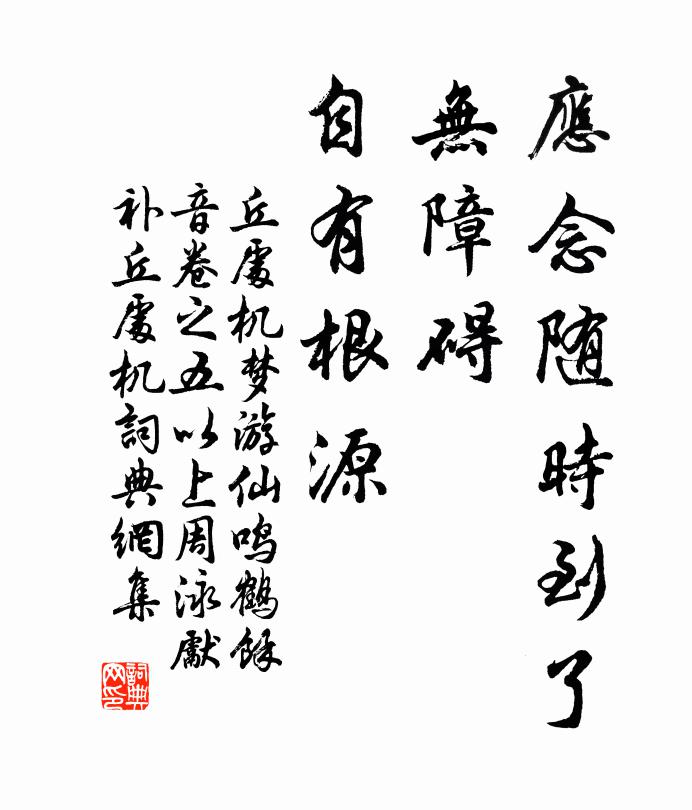 應念随時到了
無障碍
自有根源
丘處机梦游仙鸣鶴餘
音卷之五以上周泳獻
补丘處机詞典網集
詞典网印